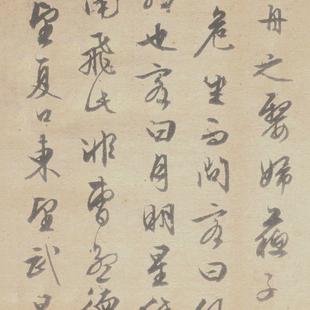 舟之嫠婦蘇子
危坐而問客曰何
然也客曰月明星稀
南飛此非曹孟德
望夏口東望武昌